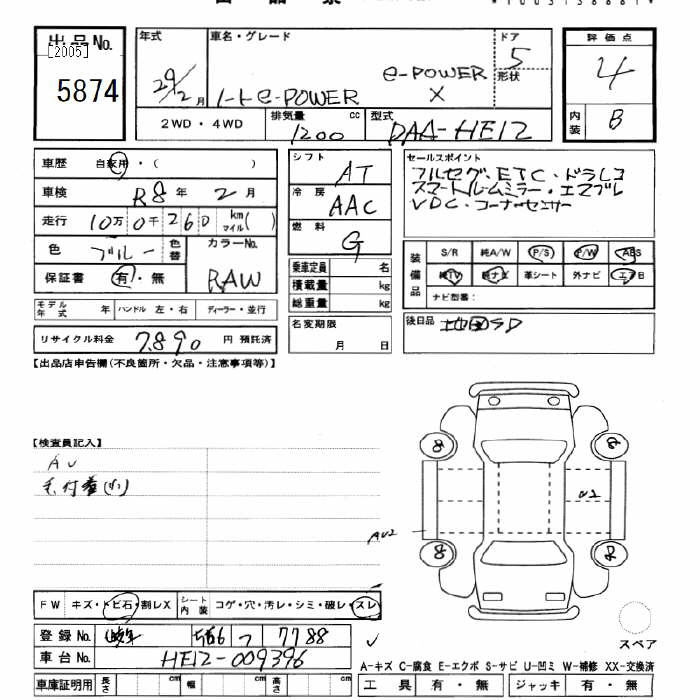 出品No.
[2005]
5874
年式
29/2月
車名・グレード
ノート e-POWER
e-POWER
X
ドア
5
形状
評価点
4
内装
B
2WD・4WD
排気量 cc
1200
型式
DAA-HE12
車歴 自家用・( )
車検 R8年 2月
走行 10万 0千 260 km マイル( )
色 ブルー 色替
カラーNo.
RAW
保証書 有・無
モデル年式 年 ハンドル 左・右 ディーラー・並行
リサイクル料金 7890 円 預託済
シフト AT
冷房 AAC
燃料 G
乗車定員 名
積載量 kg
総重量 kg
名変期限
月 日
セールスポイント
フルセグ・ETC・ドラレコ
スマートルームミラー・エマブレ
VDC・コーナーセンサー
装備品
S/R 純A/W P/S P/W ABS
純TV 純ナビ 革シート 外ナビ エアB
ナビ型番:
後日品 地図SD
【出品店申告欄(不良箇所・欠品・注意事項等)】
【検査員記入】
AU
毛付着(小)
U2
AU2
FW キズ・トビ石・割レX シート内装 コゲ・穴・汚レ・シミ・破レ・スレ
登録No. 566 つ 7788
車台No. HE12-009396
車庫証明用 長さ cm 幅 cm 高さ cm
スペア
A-キズ C-腐食 E-エクボ S-サビ U-凹ミ W-補修 XX-交換済
工具 有・無 ジャッキ 有・無